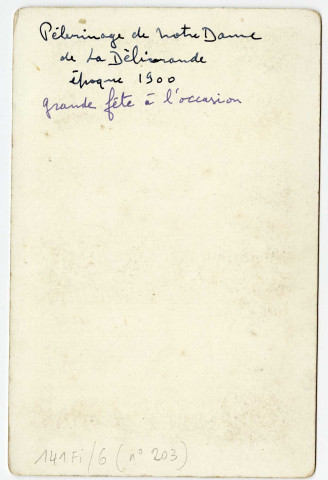 Pélerinage de Notre Dame
de La Délivrande
époque 1900
grande fête à l'occasion
141Fi/6 (n° 203)